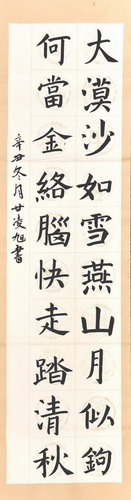 大漠沙如雪燕山月似鉤
何當金絡腦快走踏清秋
辛丑冬月廿凌旭書